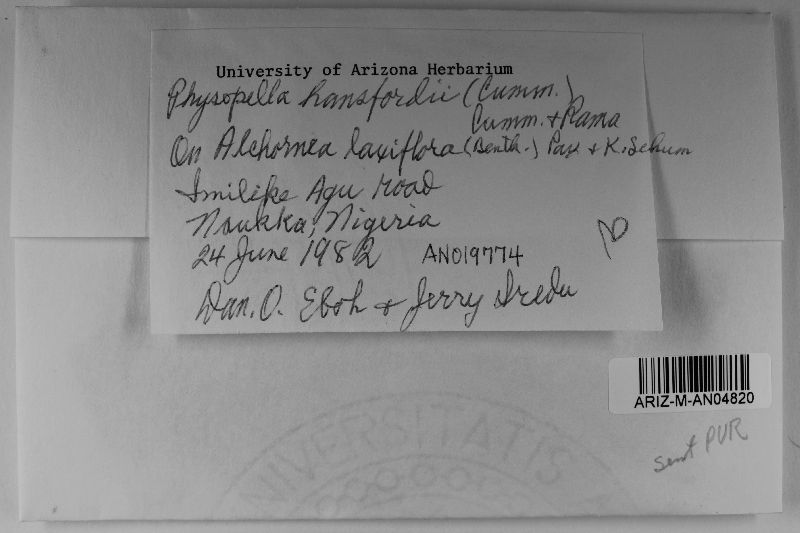 University of Arizona Herbarium
Physopella hansfordii (Cumm.)
Cumm. & Rama
On Alchornea laxiflora (Benth.) Pax & K. Schum
Imilike Agu road
Nsukka, Nigeria
24 June 1982 AN019774
Dan. O. Eboh & Jerry Iredu
ARIZ-M-AN04820
sent PUR
UNIVERSITATIS